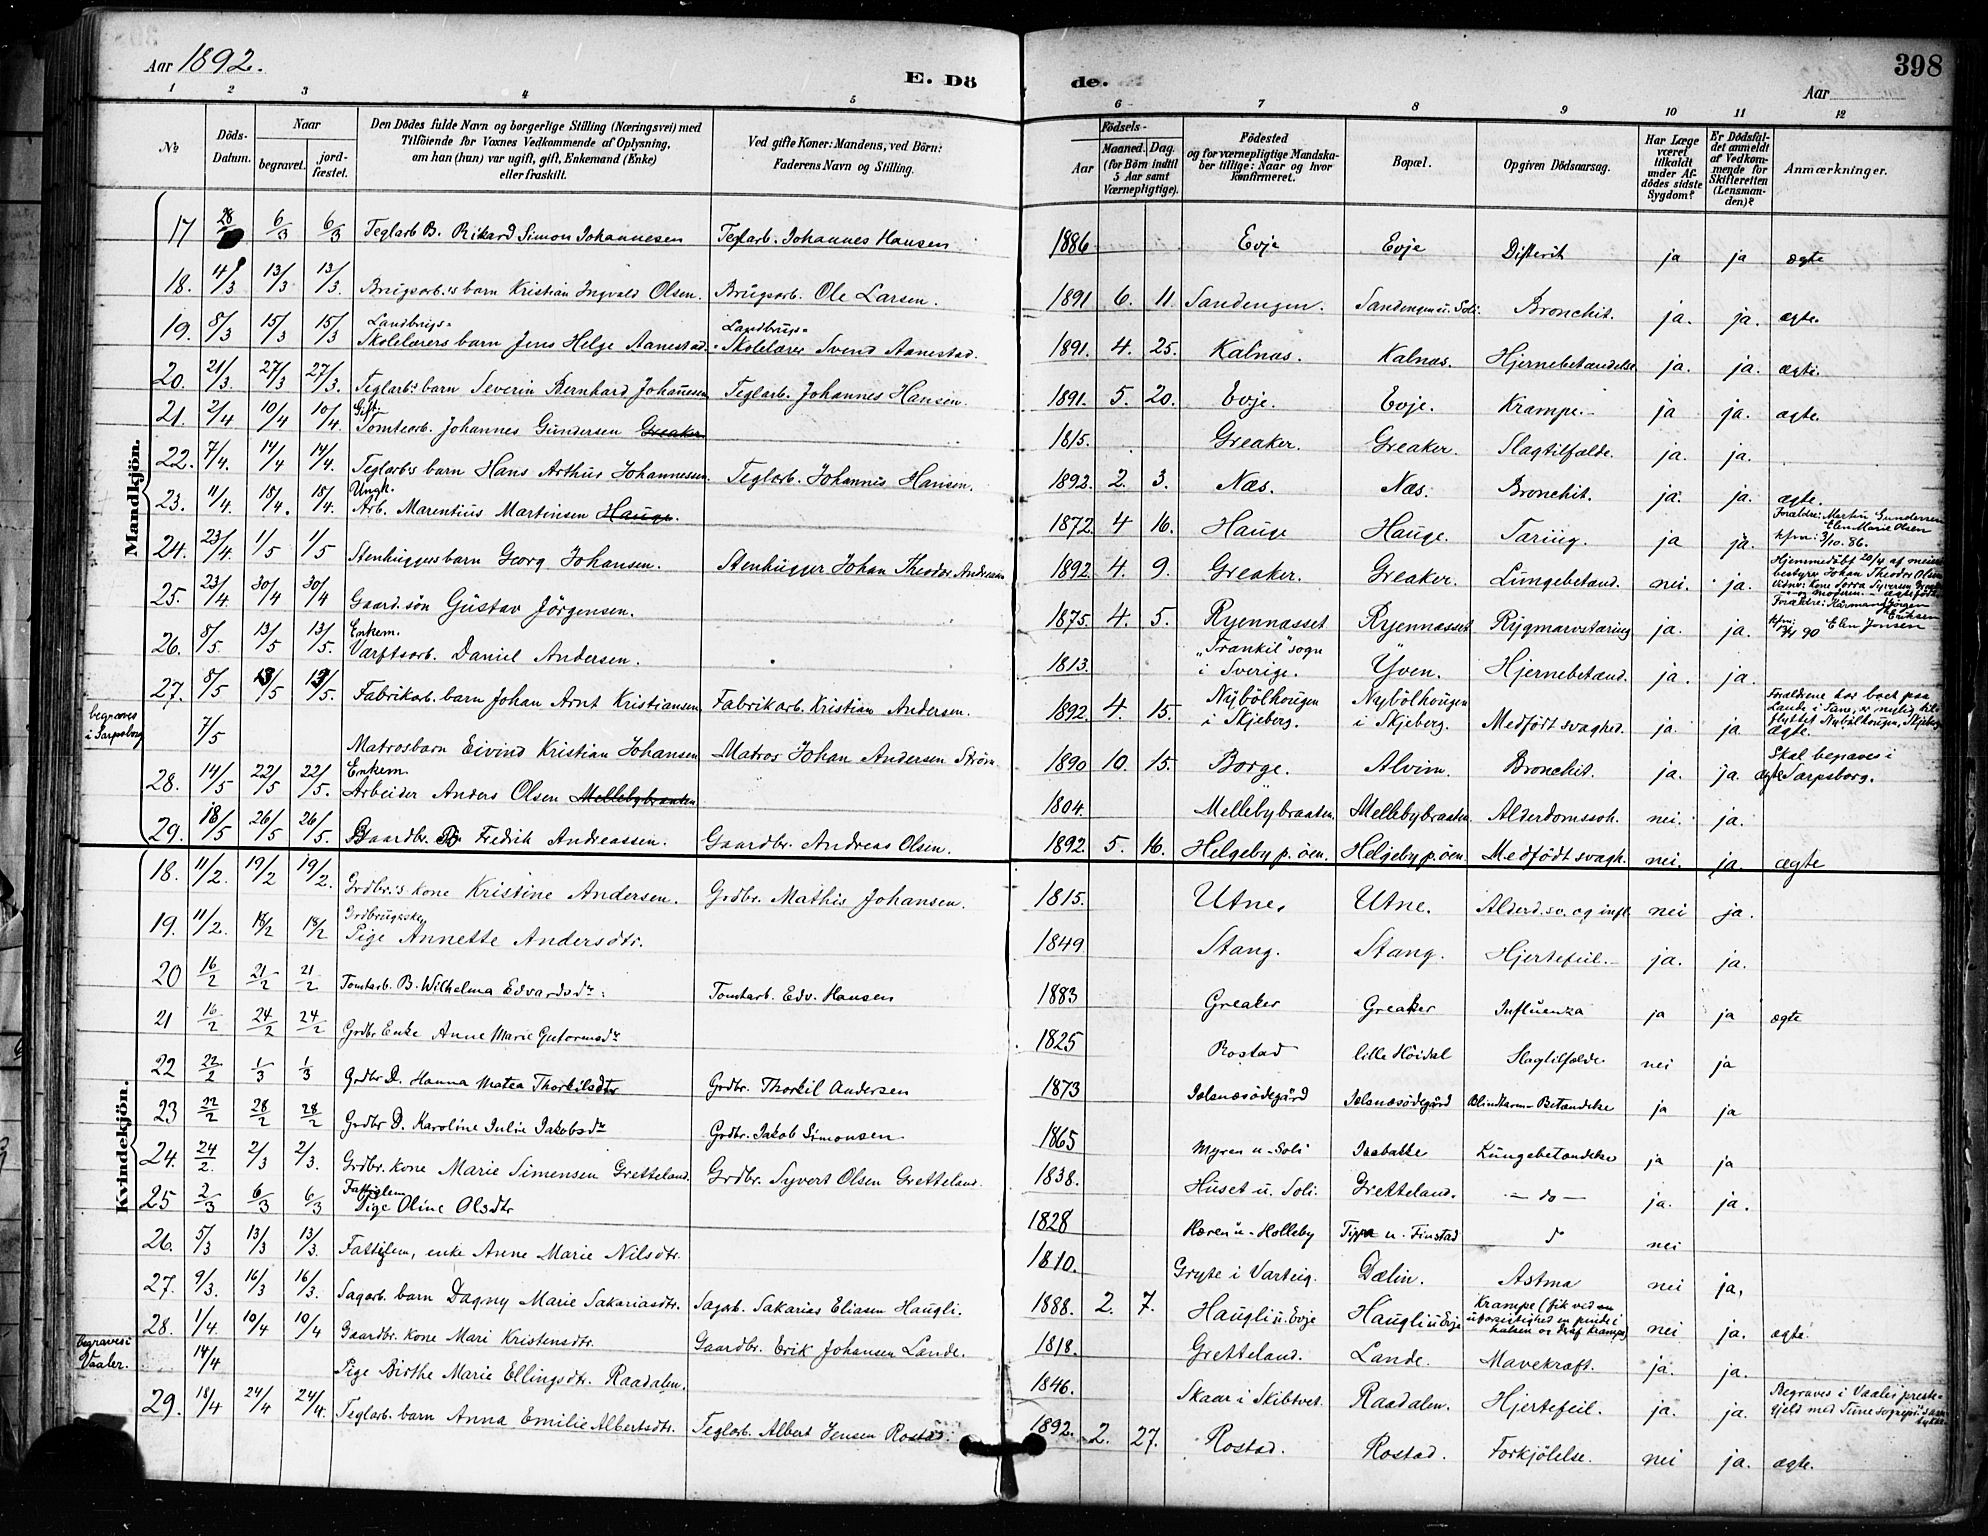 Aar 1892.
E. Dö de.
398
Aar
1 2 3 4 5 6 7 8 9 10 11 12
№
Döds-Datum.
Naar
begravet.
jord-fæstet.
Den Dödes fulde Navn og borgerlige Stilling (Næringsvei) med
Tilföiende for Voxnes Vedkommende af Oplysning,
om han (hun) var ugift, gift, Enkemand (Enke)
eller fraskilt.
Ved gifte Koner: Mandens, ved Börn:
Faderens Navn og Stilling.
Födsels-
Aar
Maaned. Dag.
(for Börn indtil
5 Aar samt
Værnepligtige).
Födested
og for værnepligtige Mandska-
ber tillige: Naar og hvor
konfirmeret.
Bopæl.
Opgiven Dödsaarsag.
Har Læge
været
tilkaldt
under Af-
dödes sidste
Sygdom?
Er Dödsfal-
det anmeldt
af Vedkom-
mende for
Skifteretten
(Lensman-
den)?
Anmærkninger.
Mandkjön.
17 28 6/3 6/3 Teglarb B. Rikard Simon Johannesen Teglarb. Johannes Hansen 1886 Evje Evje Difterit ja ja ægte
18. 4/3 13/3 13/3. Brugsarb.s barn Kristian Ingvald Olsen. Brugsarb. Ole Larsen. 1891 6. 11. Sandengen. Sandengen u. Soli. Bronchit. ja. ja. ægte.
19. 8/3 15/3 15/3 Landbrugs-Skolelærers barn Jens Helge Aanestad. Landbrugs-Skolelærer Svend Aanestad. 1891. 4. 25. Kalnæs. Kalnæs. Hjernebetændelse ja. ja. ægte.
20. 21/3. 27/3 27/3. Teglarb.s barn Severin Bernhard Johannesen Teglarb. Johannes Hansen. 1891. 5. 20. Evje. Evje. Krampe. ja ja. ægte.
21. 2/4 10/4 10/4. Gift Tomtearb. Johannes Gundersen Greaker. 1815. Greaker. Greaker. Slagtilfælde. ja. ja.
22. 7/4. 14/4 14/4. Teglarb.s barn Hans Arthur Johannessen. Teglarb. Johannes Hansen. 1892. 2. 3. Næs. Næs. Bronchit. ja. ja. ægte.
23. 11/4. 18/4. 18/4. Ungk. Arb. Marentius Martinsen Hauge. 1872. 4 16. Hauge Hauge. Tæring. ja ja. Forældre: Martin Gundersen Elen Marie Olsen kfm: 3/10. 86.
24. 23/4. 1/5 1/5 Stenhuggers barn Georg Johansen. Stenhugger Johan Theodor Andreasen 1892. 4. 9. Greaker. Greaker. Lungebetænd. nei. ja. Hjemmedöbt 20/4 af meieri-bestyrer Johan Theodor Olsen
25. 23/4. 30/4 30/4 Gaard. sön Gustav Jörgensen. 1875. 4. 5. Ryennæsset Ryennæsset Rygmarvstæring ja. ja. Forældre: Jörgen Eriksen Elen Jonsen kfm: 90
26. 8/5 13/5 13/5. Enkem. Værftsarb. Daniel Andersen. 1813. "Trankil" sogn i Sverige. Yven. Hjernebetænd. ja. ja.
27. 8/5 13/5 13/5. Fabrikarb. barn Johan Arnt Kristiansen Fabrikarb. Kristian Andersen. 1892. 4. 15. Nybölhougen i Skjeberg. Nybölhougen i Skjeberg. Medfödt svaghed. ja. ja Forældrene har boet paa Lande i Tune, er nylig tilflyttet Nybölhougen, Skjeberg ægte.
begraves i Sarpsborg 7/5 Matrosbarn Eivind Kristian Johansen Matros Johan Andersen Ström 1890 10. 15. Borge. Alvim. Bronchit. ja. ja. ægte Skal begraves i Sarpsborg.
28. 14/5 22/5 22/5. Enkem. Arbeider Anders Olsen Mellebybraaten 1804. Mellebybraaten. Mellebybraaten. Alderdomssvh. nei. ja.
29. 18/5 26/5 26/5. Gaardbr. Sö Fredrik Andreassen. Gaardbr. Andreas Olsen. 1892. 5. 16. Helgeby p. öen. Helgeby p. öen. Medfödt svagh. nei. ja. ægte
Kvindekjön.
18. 11/2. 19/2 19/2. Grdbr.s kone Kristine Andersen. Grdbr. Mathis Johansen. 1815. Utne. Utne. Alderd. sv. og infl. nei ja.
19. 11/2. 18/2 18/2 Pige Annette Andersdtr. 1849. Stang. Stang. Hjertefeil. ja. ja.
20 16/2 21/2 21/2 Tomtarb. B. Wilhelma Edvardsdr. Tomtarb. Edv. Hansen 1883 Greaker Greaker Influenza ja ja ægte
21 16/2 24/2 24/2 Grdbr Enke Anne Marie Gutormsdr 1825 Rostad lille Höidal Slagtilfælde nei ja
22 22/2 1/3 1/3 Grdbr D. Hanna Matea Thorkilsdtr Grdbr. Thorkil Andersen 1873 Isleneæsödegård Isleneæsödegård Blindtarm-Betændelse ja ja
23 22/2 28/2 28/2 Grdbr D. Karoline Julie Jakobsdr Grdbr. Jakob Simonsen 1865 Myren u. Soli Isebakke Lungebetændelse ja ja
24. 24/2. 2/3 2/3. Grdbr. kone Marie Simensen Gretteland. Grdbr. Syvert Olsen Gretteland. 1838. Huset u. Soli. Gretteland. - do - ja. ja.
25 2/3 6/3 6/3 Fattiglem Pige Oline Olsdtr 1828 Kæren u. Holleby Tippe u. Finstad do nei
26. 5/3 13/3 13/3. Fattiglem, enke Anne Marie Nilsdtr. 1810. Gryte i Varteig. Dælin. Astma nei ja,
27. 9/3. 16/3 16/3. Sagarb. barn Dagny Marie Sakariasdtr. Sagarb. Sakarias Eliasen Haugli. 1888. 2. 7. Haugli u. Evje Haugli u. Evje Krampe (fik ved en uforsigtighed en pind i halsen og deraf krampe) nei ja. ægte.
28. 1/4. 10/4 10/4 Gaardbr. kone Mari Kristensdtr. Gaardbr. Erik Johansen Lande. 1818. Gretteland. Lande. Mavekræft. ja. ja.
begraves i Vaaler. 14/4 Pige Birthe Marie Ellingsdtr. Raadalen. 1846. Skaar i Skibtvet Raadalen. Hjertefeil. ja. ja. Begraves i Vaaler præste-gjeld med Tune sognepr. sam-tykke
29. 18/4 24/4 24/4. Teglarb. barn Anna Emilie Albertsdtr. Teglarb. Albert Jensen Rostad. 1892. 2. 27. Rostad. Rostad. Forkjölelse. nei ja. ægte.